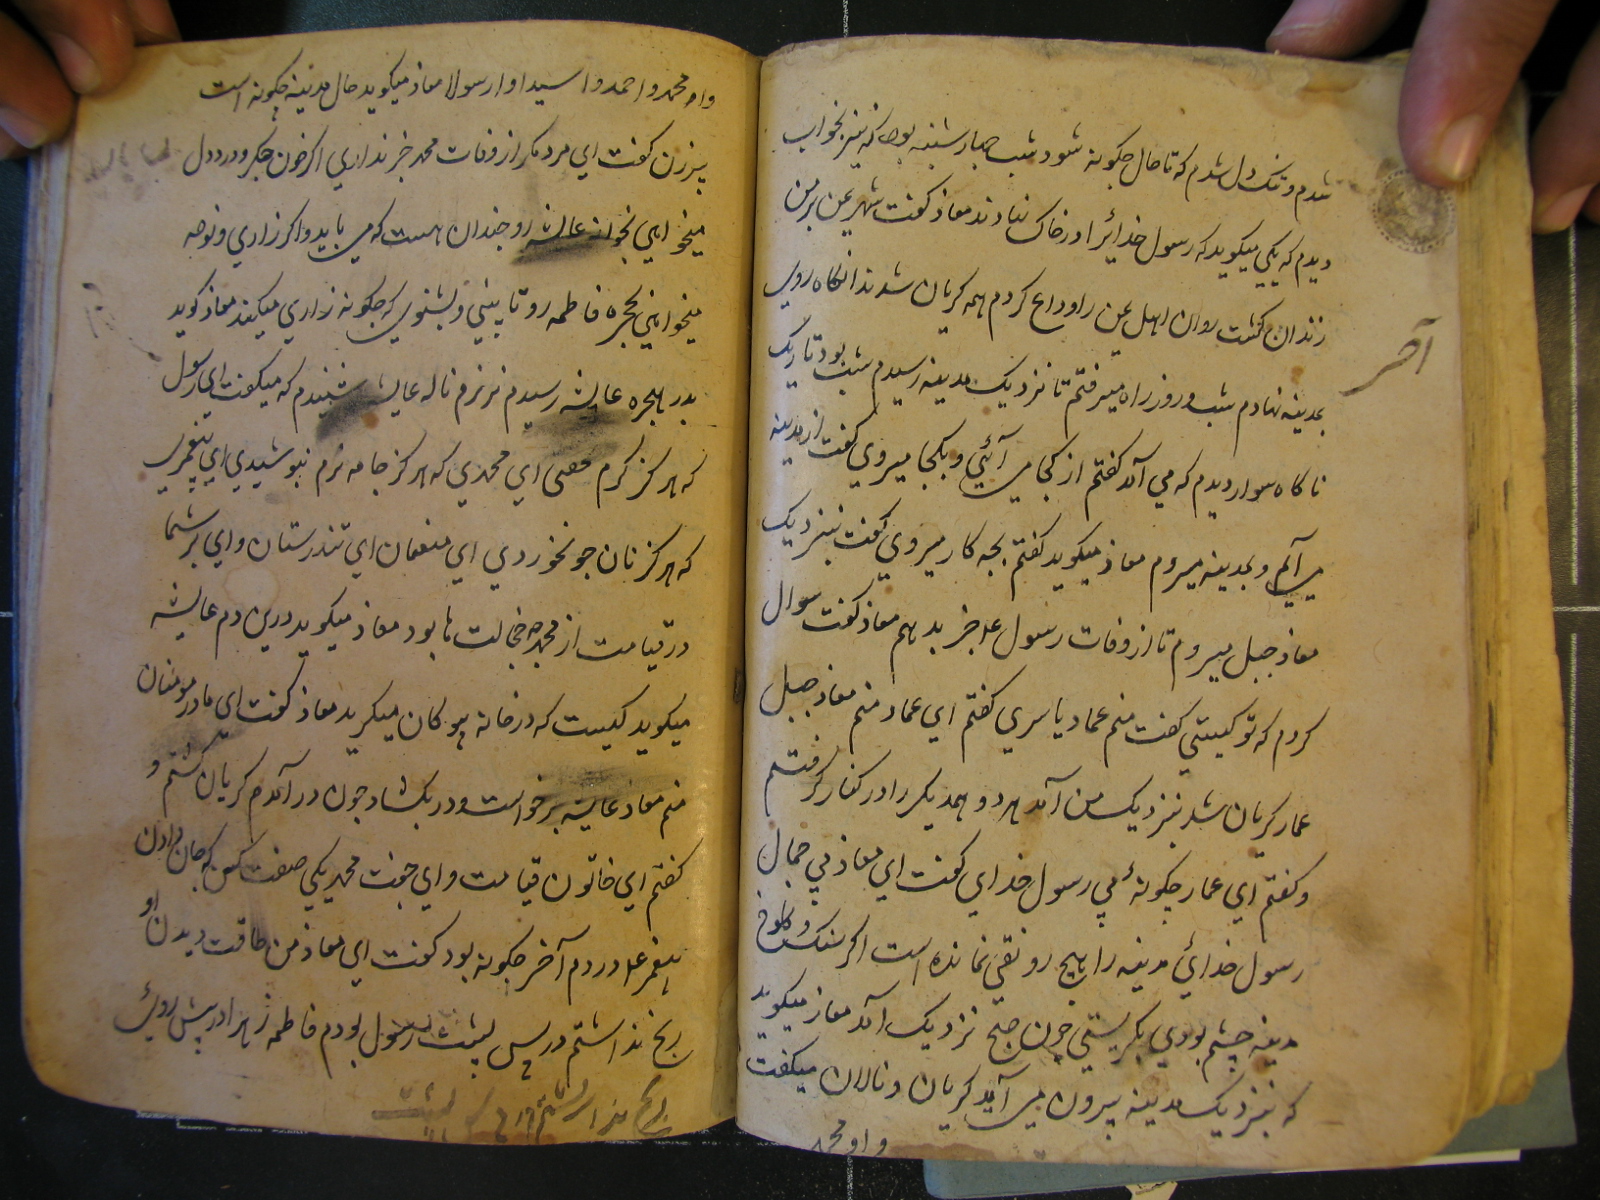 شدم و تنک دل شدم که تا حال جکونه شود شب جهار شنبه بود که نیز بخواب
دیدم که یکی میکوید که رسول خدائرا در خاک نهادند معاذ کفت شهر یمن بر من
زندان کشت روان اهل یمن را وداع کردم همه کریان شدند انکاه روی
بمدینه نهادم شب و روز راه میرفتم تا نزدیک مدینه رسیدم شب بود تاریک
ناکاه سوار دیدم که می آمد کفتم از کجا می آئی و بکجا میروی کفت از مدینه
می آیم و بمدینه میروم معاذ میکوید کفتم بجه کار میروی کفت بنزدیک
معاذ جبل میروم تا از وفات رسول ۴ خبر بدهم معاذ کفت سوال
کردم که تو کیستی کفت منم عماد یاسری کفتم ای عماد منم معاذ جبل
عمار کریان شد بنزدیک من آمد هر دو همدیکر را در کنار کرفتیم
و کفتم ای عمار جکونهٔ بی رسول خدای کفت ای معاذ بی جمال
رسول خدائ مدینه را هیج رونقی نمانده است اکر سنک و کلوخ
مدینه چشم بودی بکریستی چون صبح نزدیک آمد معاذ میکوید
که بنزدیک مدینه بیرون می آمد کریان و نالان میکفت
و او محمد
آخر
واه محمد وا احمد وا سیدا وا رسولا معاذ میکوید حال مدینه جکونه است
بیرزن کفت ای مرد مکر از وفات محمد خبر نداری اکر خون جکر و درد دل
میخواهی بحجره عالیشه رو جندان هست که می باید و اکر زاری و نوحه
میخواهی بحجره فاطمه رو تا ببینی و بشنوی که جکونه زاری میکند معاذ کوید
بدر هجره عالیشه رسیدم نرم نرم ناله عالیشه شنیدم که میکفت ای رسول
که هرکز کرم ای محمدی که هرکز جامه نرم نبوشیدی ای بیغمبری
که هرکز نان جو نخوردی ای منعمان ای تندرستان و ای بر شما
در قیامت از محمد جه خجالت ها بود معاذ میکوید درین دم عالیشه
میکوید کیست که در خانه بیوکان میکرید معاذ کفت ای مادر مومنان
منم معاذ عالیشه برخواست و در بکشاد جون در آمدم کریان کشتم و
کفتم ای خاتون قیامت و ای جفت محمد یکی صفت کن که جان دادن
بیغمبر ۴ در دم آخر جکونه بود کفت ای معاذ من طاقت دیدن او
رنج نداشتم در بس بشت رسول بودم فاطمه زهرا در بیش روئ